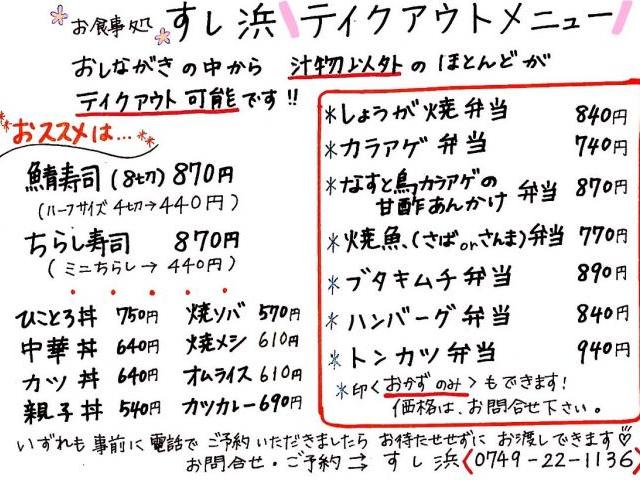 お食事処 すし浜 テイクアウトメニュー
おしながきの中から 汁物以外の ほとんどが
テイクアウト可能です!!
おススメは...
鯖寿司(8切) 870円
(ハーフサイズ 4切→440円)
ちらし寿司 870円
(ミニちらし→440円)
ひことろ丼 750円 焼ソバ 570円
中華丼 640円 焼メシ 610円
カツ丼 640円 オムライス 610円
親子丼 540円 カツカレー 690円
*しょうが焼弁当 840円
*カラアゲ弁当 740円
*なすと鳥カラアゲの
甘酢あんかけ 弁当 870円
*焼魚、(さばorさんま)弁当 770円
*ブタキムチ弁当 890円
*ハンバーグ弁当 840円
*トンカツ弁当 940円
*印くおかずのみ>もできます!
価格は、お問合せ下さい。
いずれも事前に電話でご予約いただきましたら お待たせせずに お渡しできます♡
お問合せ・ご予約→ すし浜 <0749-22-1136>